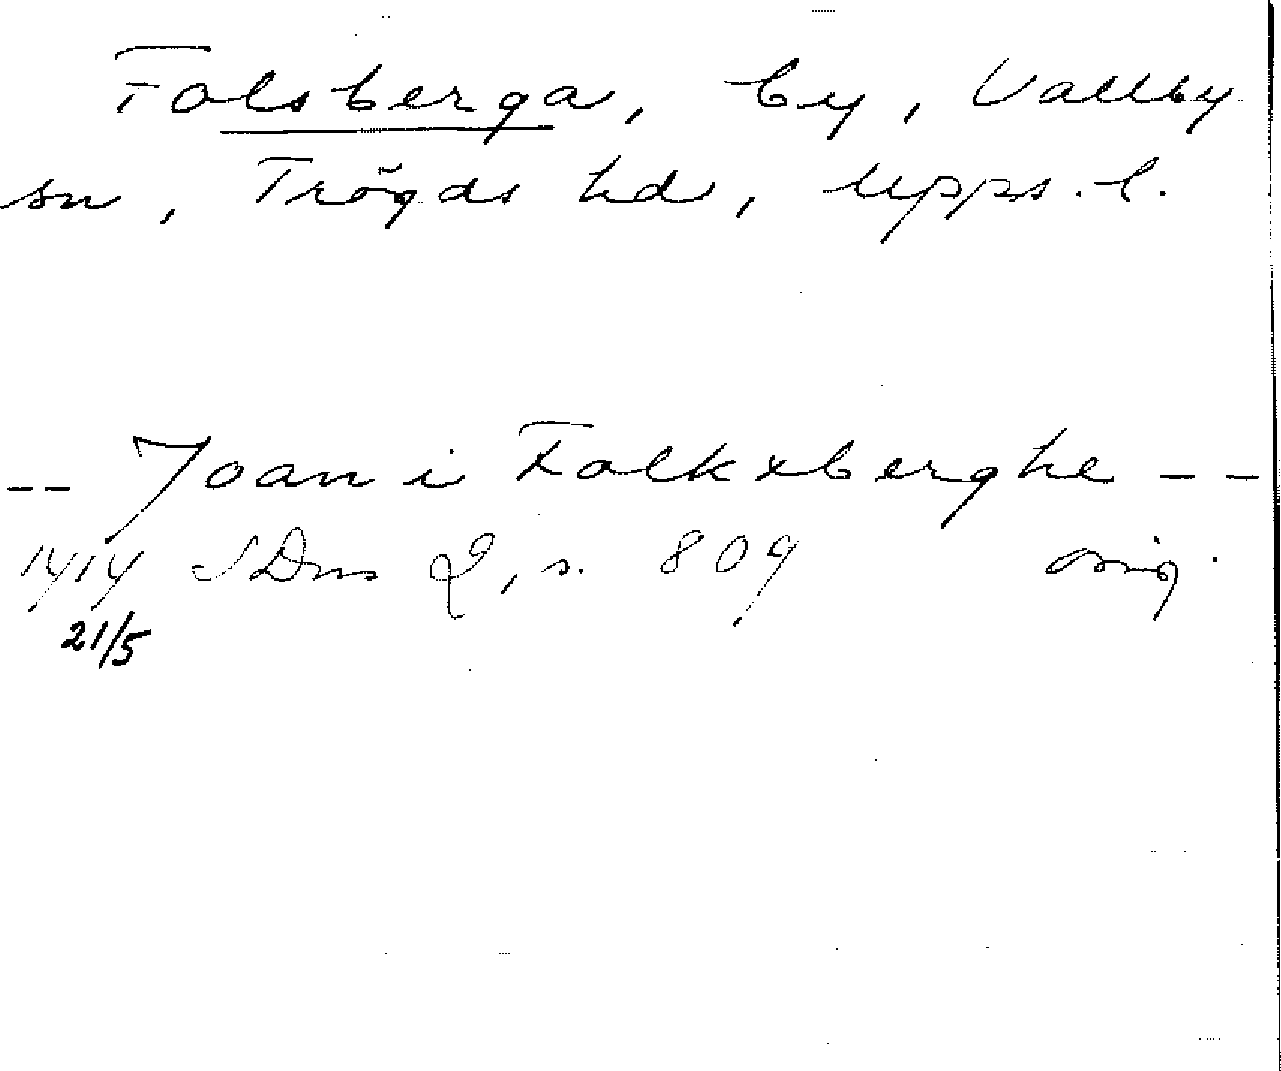 Folsberga, by, Vallby
sn, Trögds hd, Upps. l.
-- Joan i Folkxberghe --
1414 SDns 2, s. 809 orig.
21/5